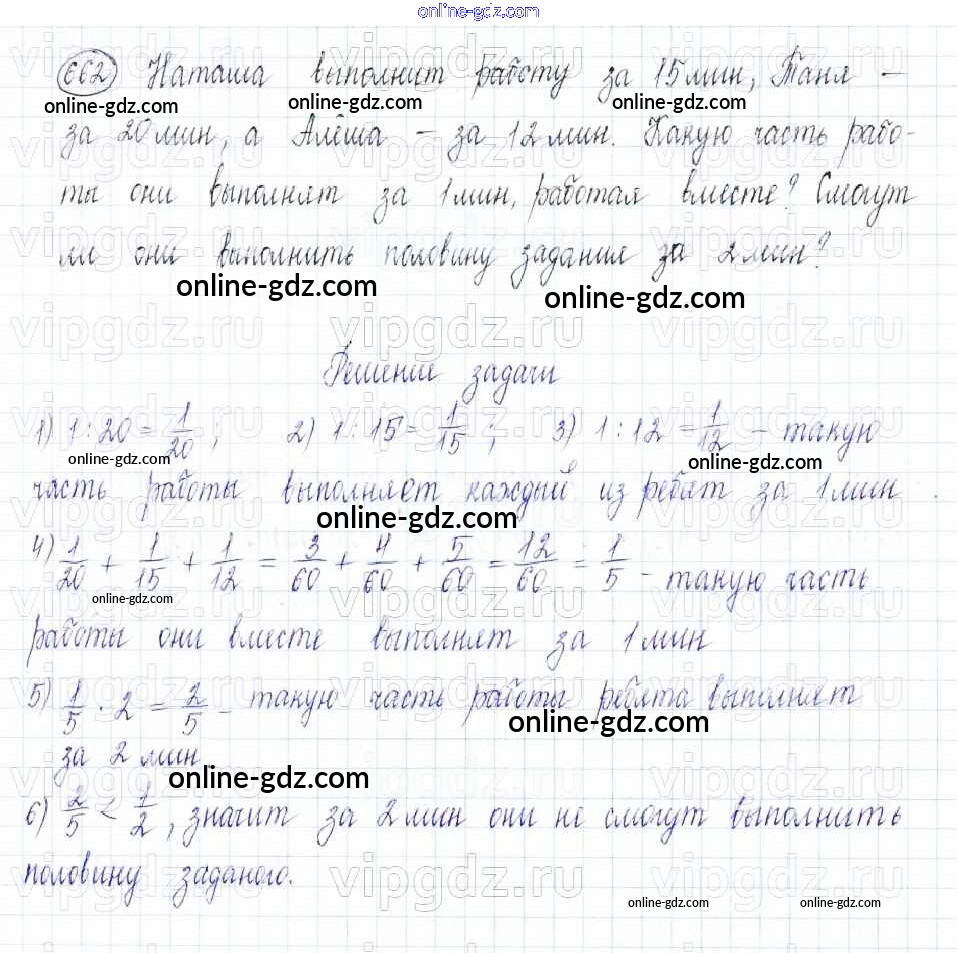 online-gdz.com
662 Наташа выполнит работу за 15 мин, Таня –
online-gdz.com online-gdz.com online-gdz.com
за 20 мин, а Алёша – за 12 мин. Какую часть рабо-
ты они выполнят за 1 мин, работая вместе? Смогут
ли они выполнить половину задания за 2 мин?
online-gdz.com online-gdz.com
Решение задачи
1) 1 : 20 = 1/20 ; 2) 1 : 15 = 1/15 ; 3) 1 : 12 = 1/12 – такую
online-gdz.com online-gdz.com
часть работы выполняет каждый из ребят за 1 мин.
online-gdz.com
4) 1/20 + 1/15 + 1/12 = 3/60 + 4/60 + 5/60 = 12/60 = 1/5 – такую часть
online-gdz.com
работы они вместе выполнят за 1 мин
5) 1/5 · 2 = 2/5 – такую часть работы ребята выполнят
online-gdz.com
за 2 мин.
online-gdz.com
6) 2/5 < 1/2, значит за 2 мин они не смогут выполнить
половину заданого.
online-gdz.com online-gdz.com
vipgdz.ru vipgdz.ru vipgdz.ru